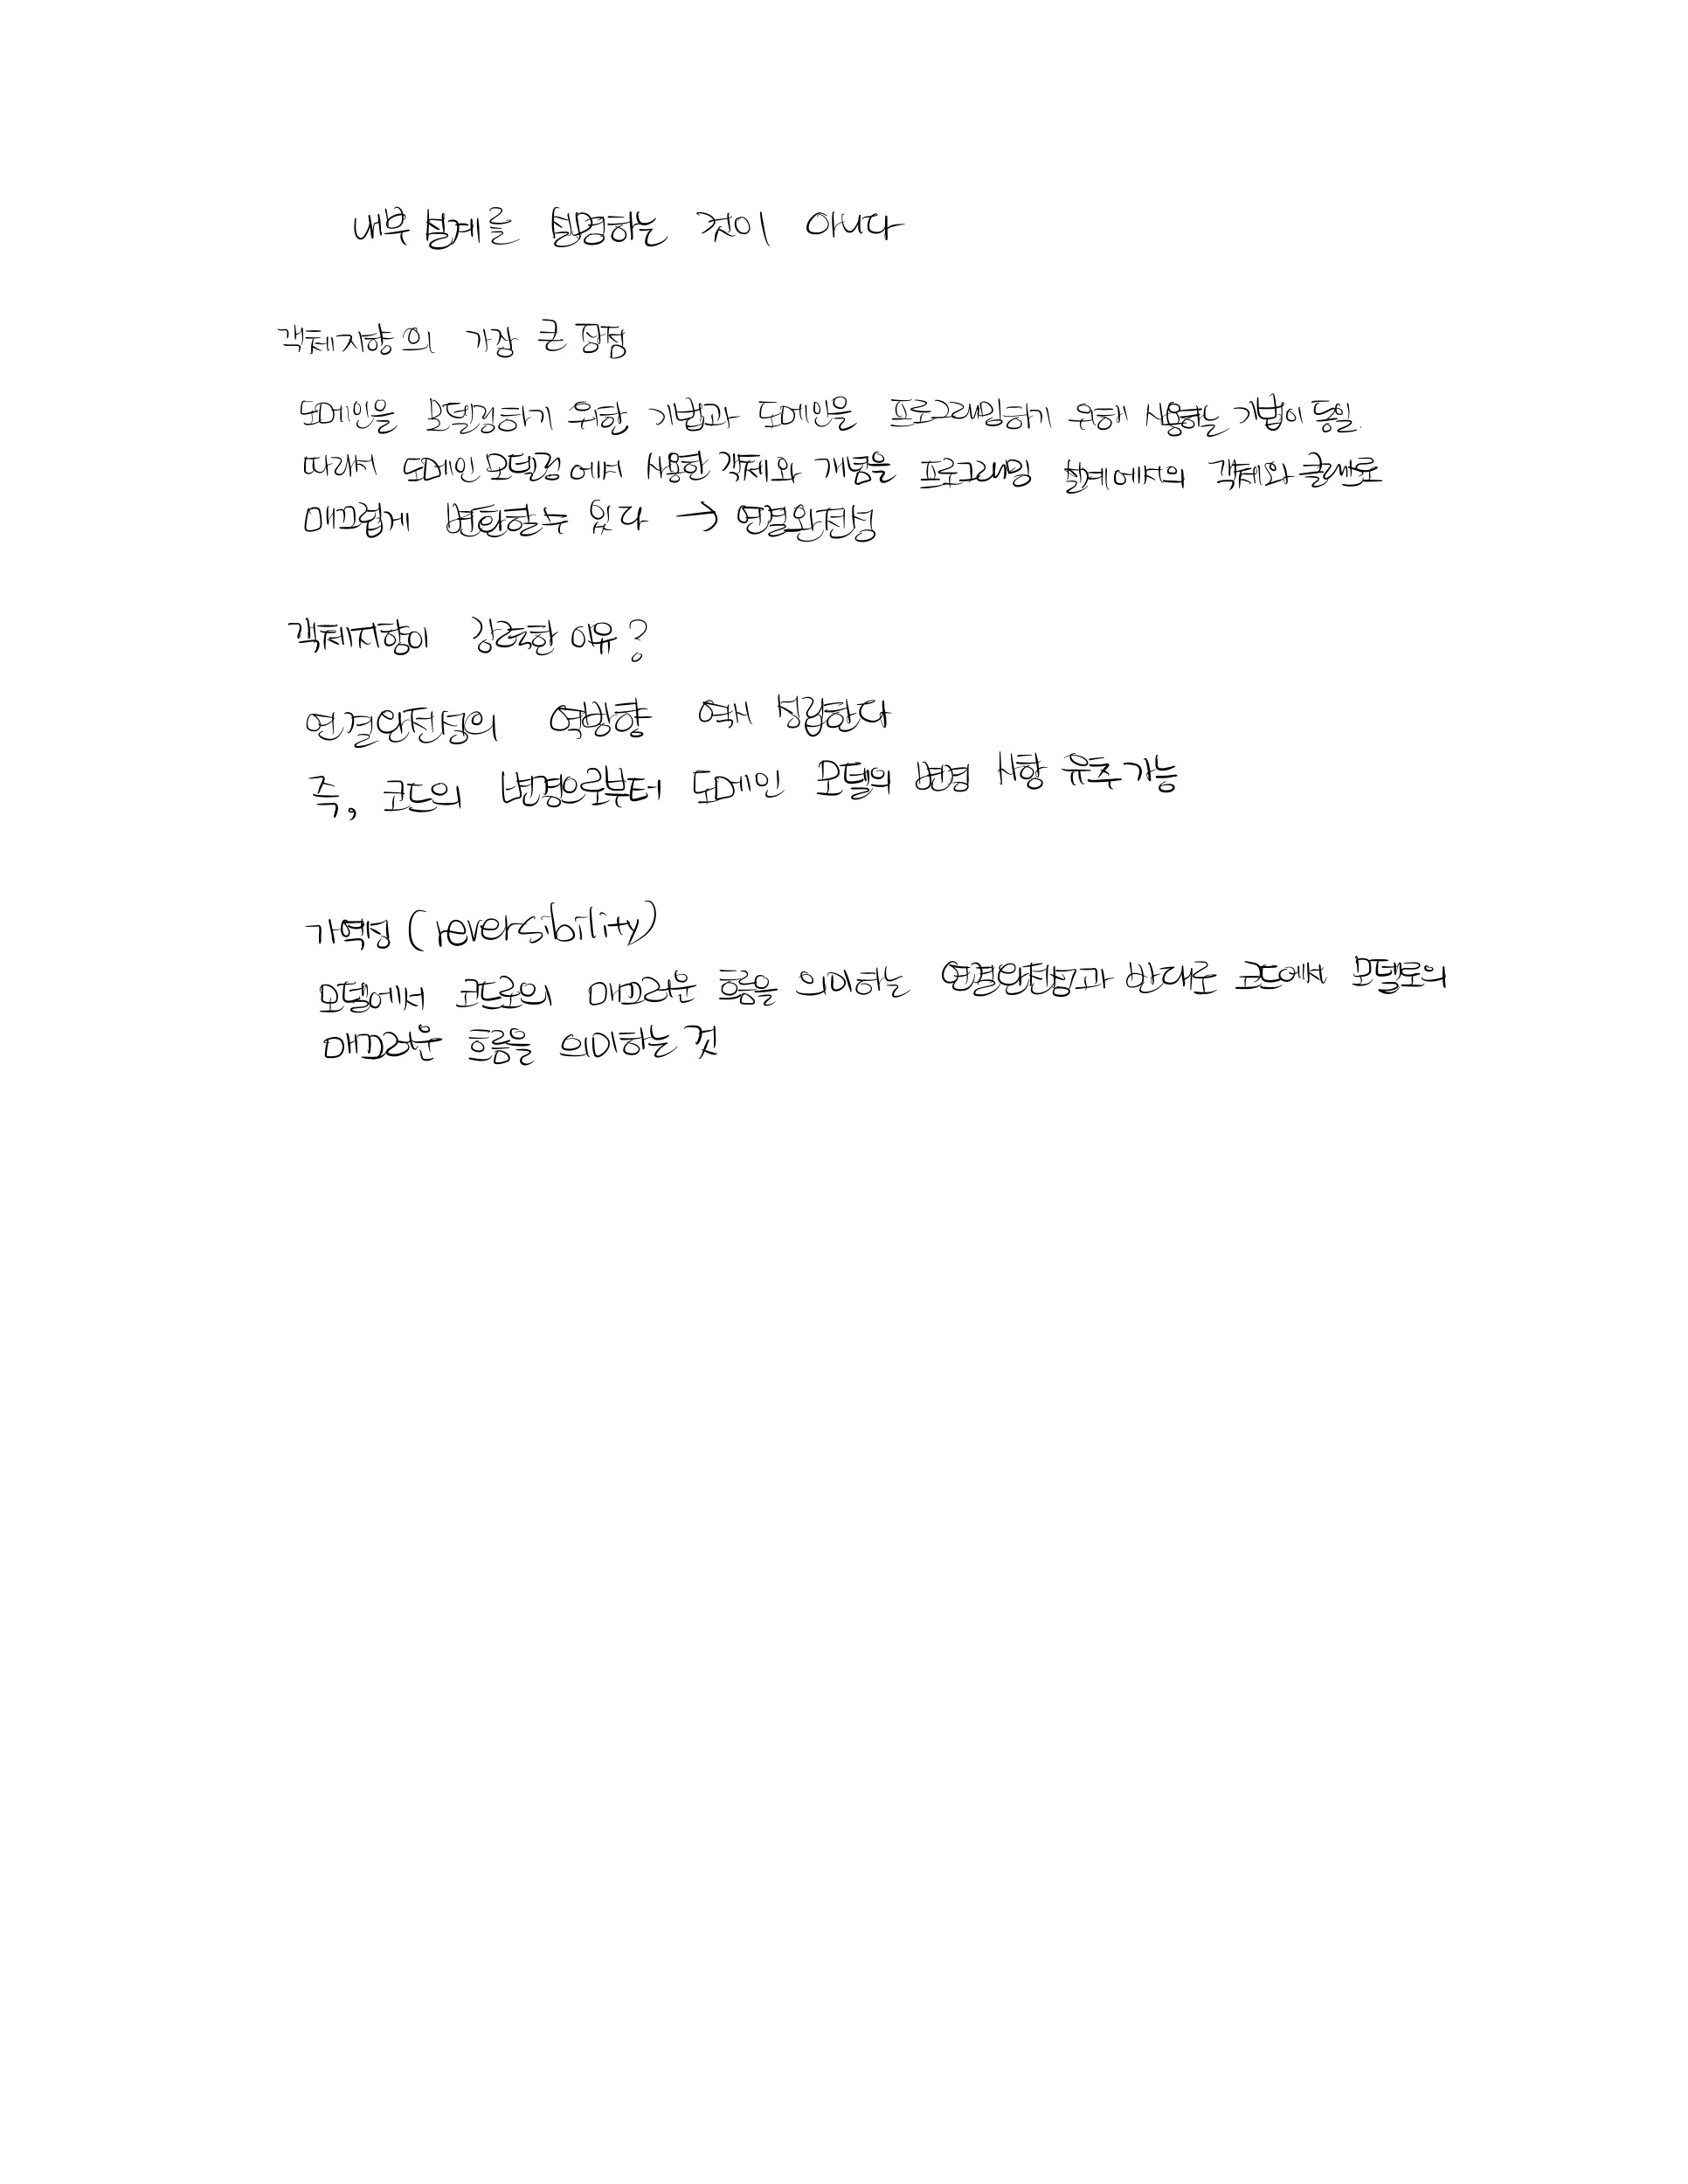 내부 설계를 설명하는 것이 아니다
객체지향의 가장 큰 장점
도메인을 모델링하기 위한 기법과 도메인을 프로그래밍하기 위해 사용하는 기법이 동일.
따라서 도메인 모델링에서 사용한 객체와 개념을 프로그래밍 설계에서의 객체와 클래스로
매끄럽게 변환할 수 있다 → 연결완전성
객체지향이 강력한 이유?
연결완전성의 역방향 역시 성립한다
즉, 코드의 변경으로부터 도메인 모델의 변경 사항 유추 가능
가역성 (reversibility)
모델에서 코드로의 매끄러운 흐름을 의미하는 연결완전성과 반대로 코드에서 모델로의
매끄러운 흐름을 의미하는 것